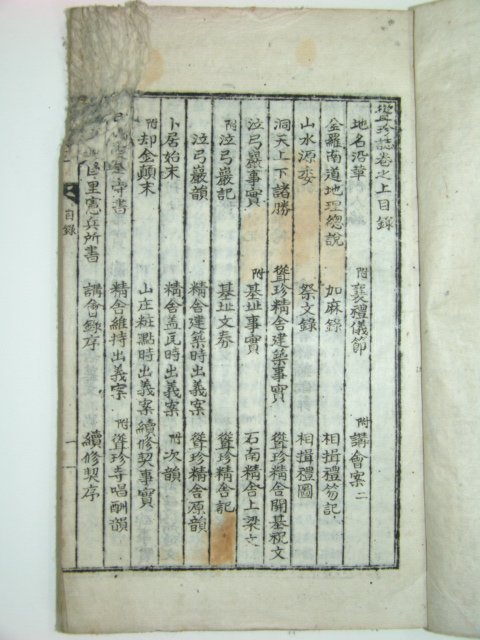 聳珍誌卷之上目錄
地名沿革 附襄禮儀節 附講會案二
全羅南道地理總說 加麻錄 相揖禮笏記
山水源委 祭文錄 相揖禮圖
洞天上下諸勝 聳珍精舍建築事實 聳珍精舍開基祝文
泣弓巖事實 附基址事實 石南精舍上梁文
附泣弓巖記 基址文券 聳珍精舍記
泣弓巖韻 精舍建築時出義案 聳珍精舍原韻
卜居始末 精舍盖瓦時出義案 附次韻
附却金顚末 山庄粧點時出義案 續修契事實
寺書 精舍維持出義案 附聳珍寺唱酬韻
里憲兵所書 講會錄序 續修契序
目錄
一